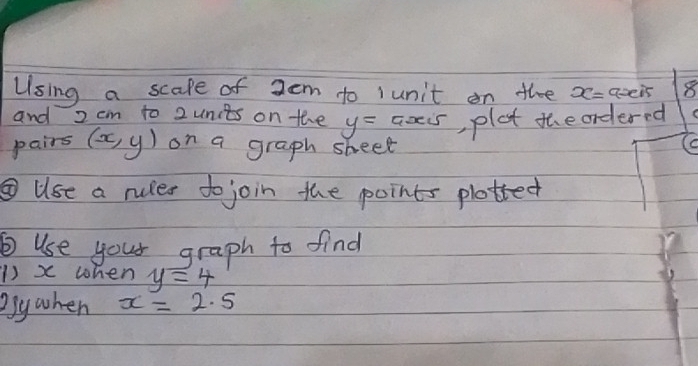 Using a scale of 2cm to 1 unit on the x=axis
and 2 cm to 2 units on the y= axis, plot the ordered
pairs (x, y) on a graph sheet
ⓐ Use a ruler to join the points plotted
ⓑ Use your graph to find
1) x when y = 4
2) y when x = 2.5
8